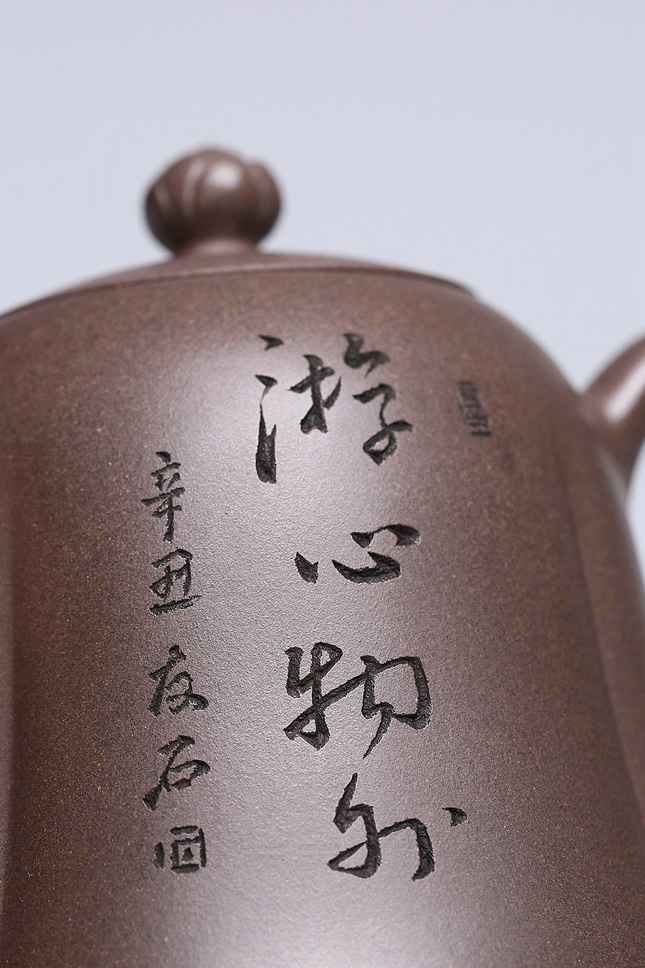 游心物外
辛丑友石